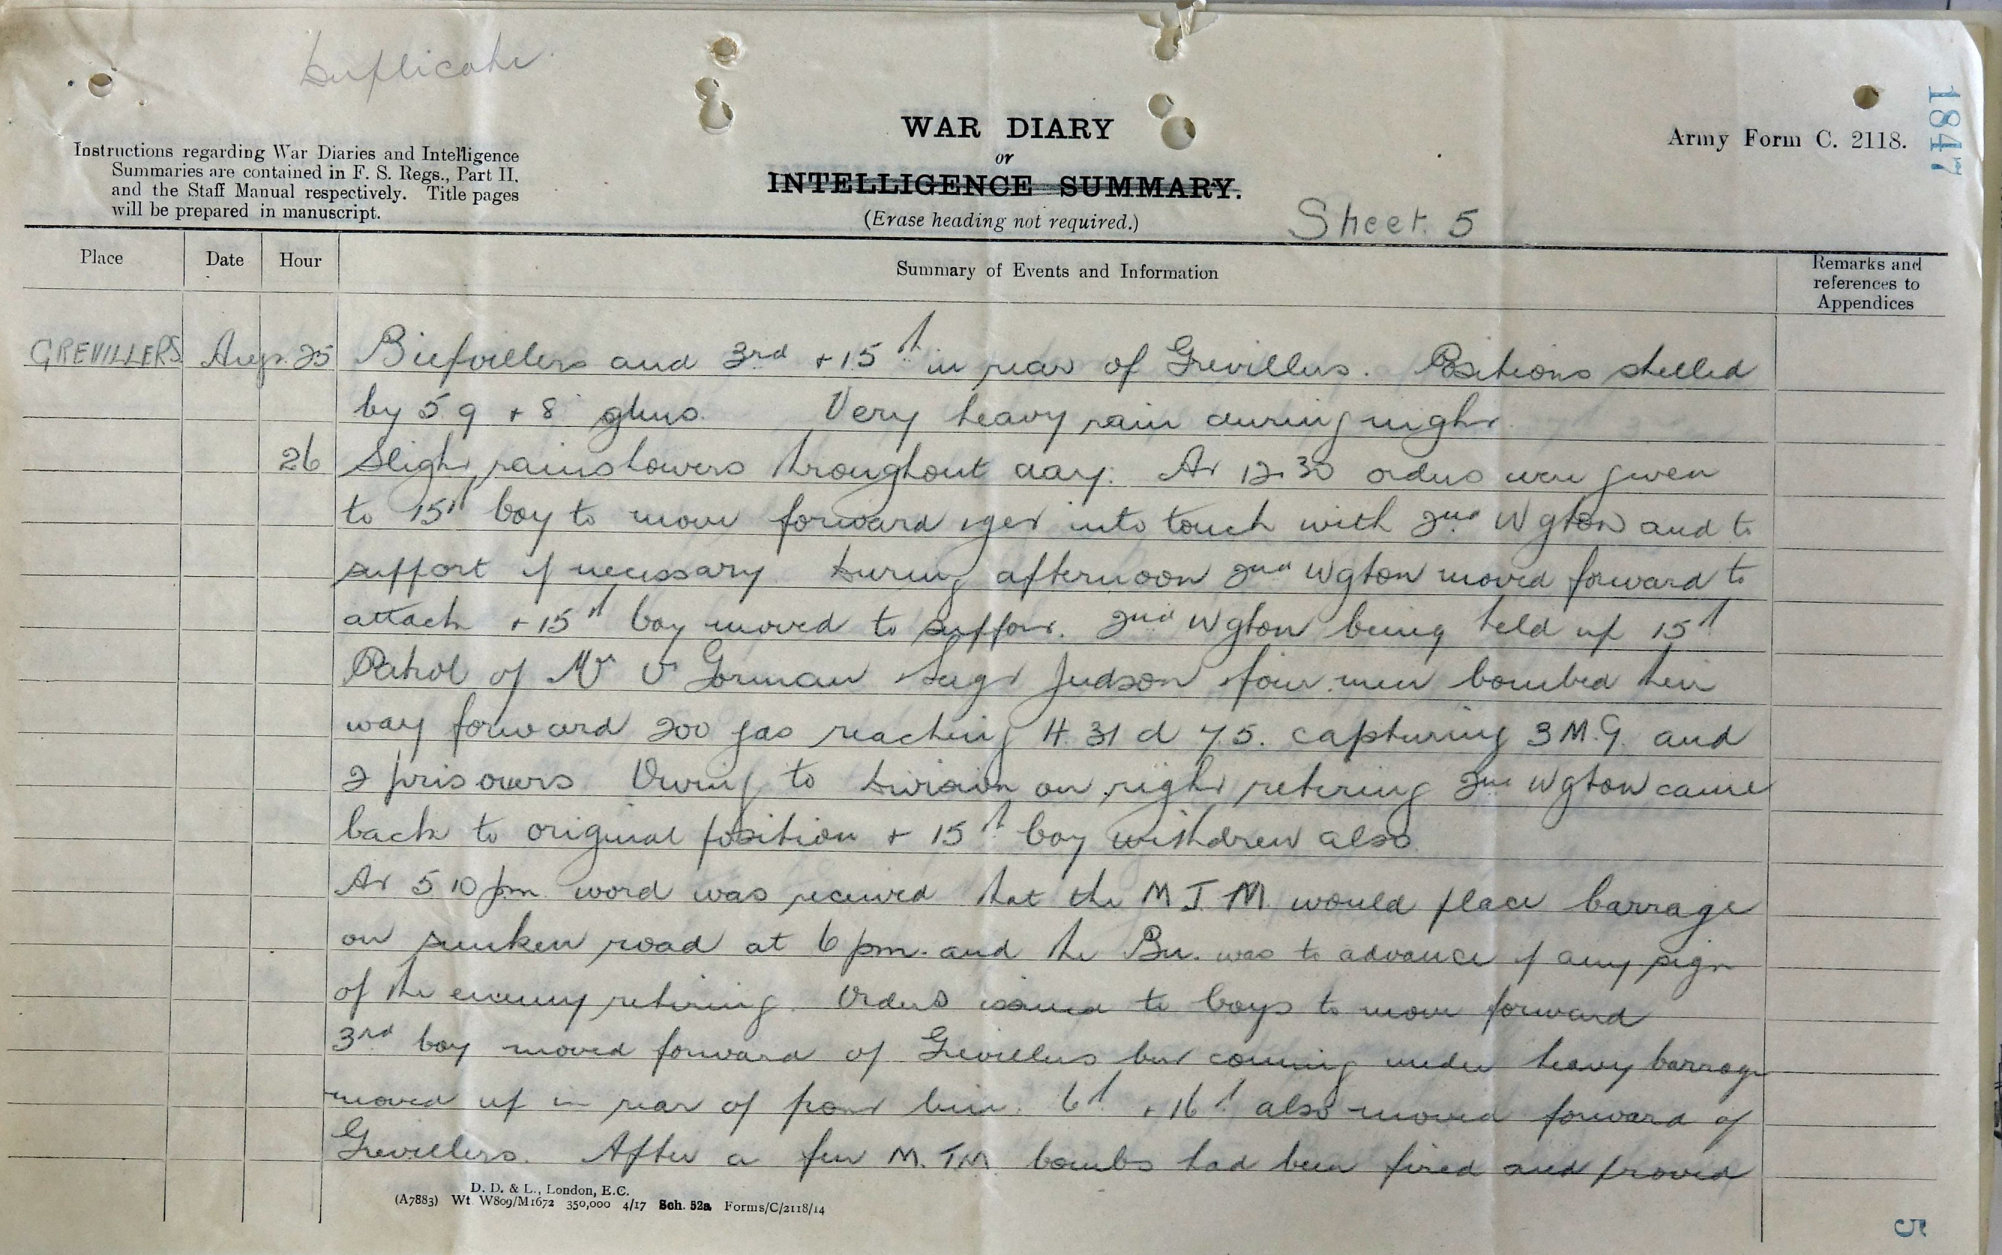 Duplicate.
1847
WAR DIARY
or
INTELLIGENCE SUMMARY.
(Erase heading not required.)
Army Form C. 2118.
Instructions regarding War Diaries and Intelligence
Summaries are contained in F. S. Regs., Part II,
and the Staff Manual respectively. Title pages
will be prepared in manuscript.
Sheet. 5
Place Date Hour Summary of Events and Information Remarks and references to Appendices
GREVILLERS Aug. 25 Biefvillers and 3rd + 15th in rear of Grevillers. Positions shelled
by 5 9 + 8" guns. Very heavy rain during night.
26 Slight rainshowers throughout day. At 12.30 orders were given
to 15th boy to move forward + get into touch with 2nd Wgton and to
support if necessary During afternoon 2nd Wgton moved forward to
attack + 15th boy moved to support. 2nd Wgton being held up 15th
Patrol of Mr Gorman Sergt Judson + four men bombed their
way forward 200 yas reaching H 31 d 7.5. capturing 3 M.G. and
2 prisoners Owing to Division on right retiring 2nd Wgton came
back to original position + 15th boy withdrew also
At 5 10 pm word was received that the M T M would place barrage
on sunken road at 6 pm. and the Bn. was to advance if any sign
of the enemy retiring. Orders issued to boys to move forward
3rd boy moved forward of Grevillers but coming under heavy barrage
moved up in rear of front line. 6th + 16th also moved forward of
Grevillers. After a few M. T.M. bombs had been fired and proved
D. D. & L., London, E.C.
(A7883) Wt. W809/M1672 350,000 4/17 Sch. 52a Forms/C/2118/14
5